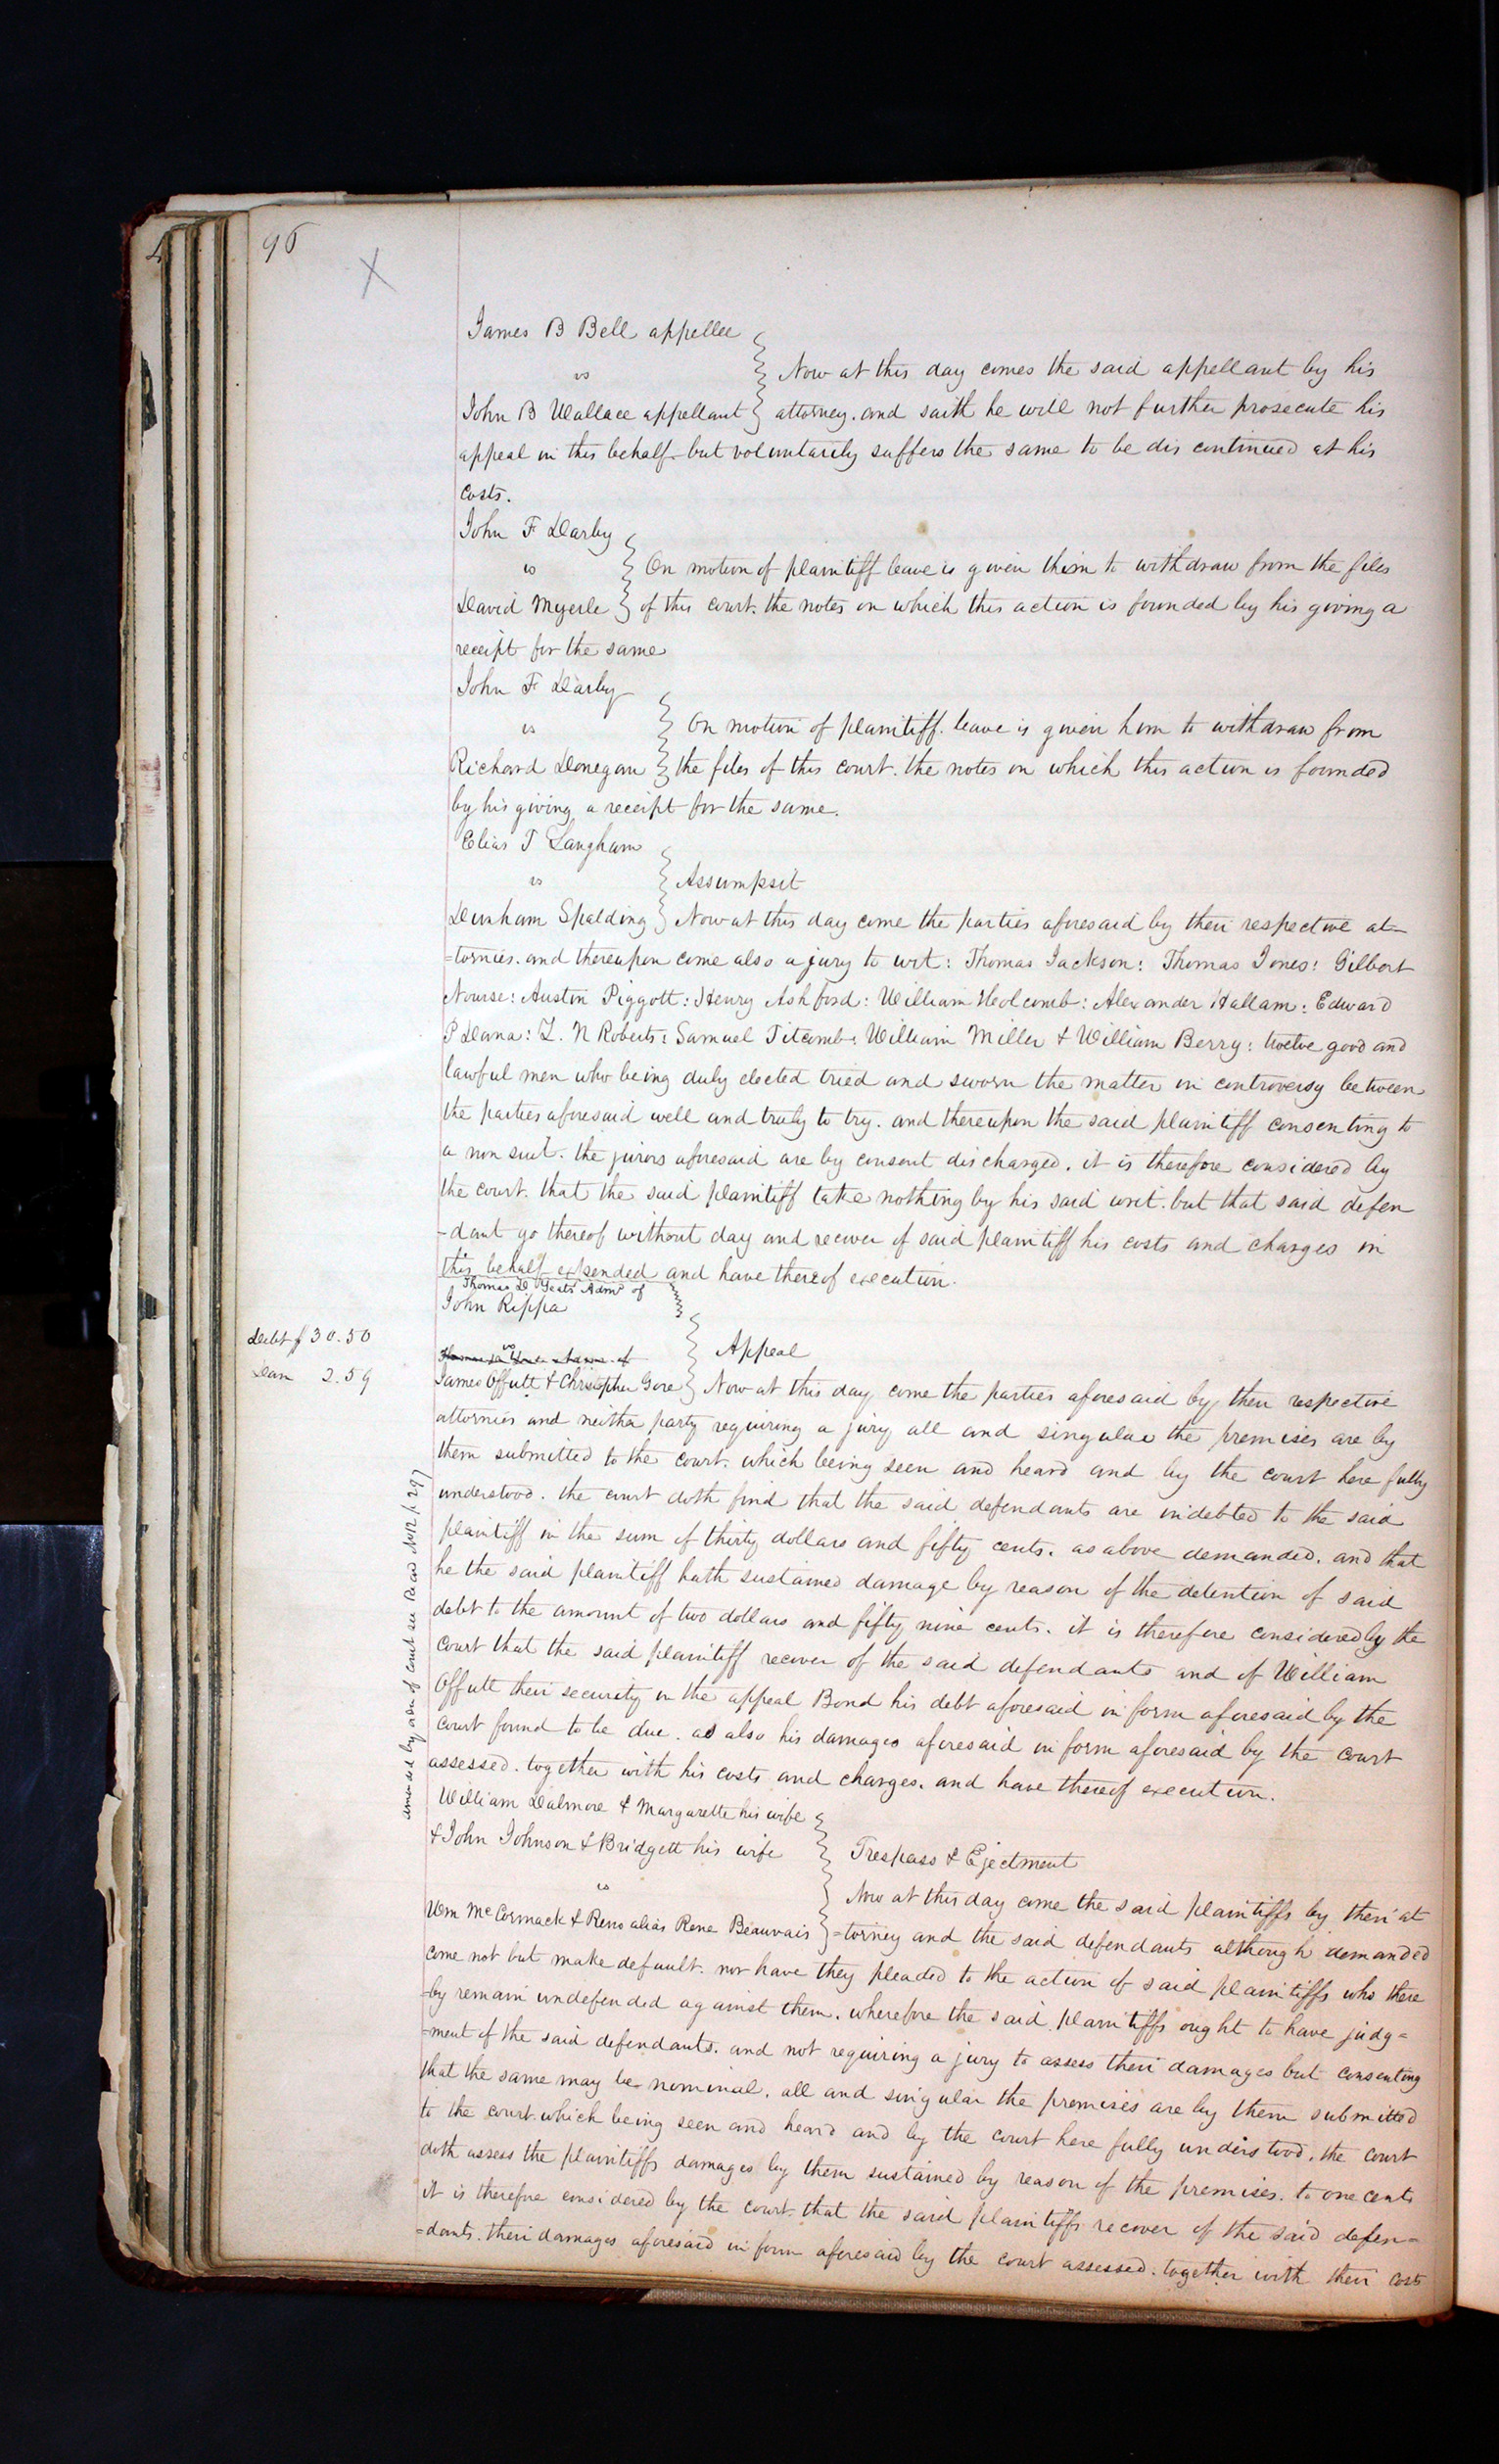 96
X
James B Bell appellee
vs
Now at this day comes the said appellant by his
John B Wallace appellant attorney. and saith he will not further prosecute his
appeal in this behalf. but voluntarily suffers the same to be dis continued at his
costs.
John F Darby
vs
On motion of plaintiff leave is given him to withdraw from the files
David Myerle of this court. the notes on which this action is founded by his giving a
receipt for the same
John F Darby
vs
On motion of plaintiff. leave is given him to withdraw from
Richard Donegan the files of this court. the notes on which this action is founded
by his giving a receipt for the same.
Elias T Langham
vs
Assumpsit
Dunham Spalding Now at this day come the parties aforesaid by their respective at-
=tornies. and thereupon come also a jury to wit: Thomas Jackson: Thomas Jones: Gilbert
Nourse: Austin Piggott: Henry Ashford: William Holcomb: Alexander Hallam: Edward
P Dana: Z. N Roberts: Samuel Titcomb: William Miller & William Berry: twelve good and
lawful men who being duly elected tried and sworn the matter in controversy between
the parties aforesaid well and truly to try. and thereupon the said plaintiff consenting to
a non suit. the jurors aforesaid are by consent discharged. it is therefore considered by
the court. that the said plaintiff take nothing by his said writ. but that said defen
-dant go thereof without day and recover of said plaintiff his costs and charges in
this behalf expended and have thereof execution.
Thomas D Yeats Admr of
John Rippa
vs
Appeal
Debt $30.50
Dam 2.59
James Offutt & Christopher Gore Now at this day come the parties aforesaid by their respective
attornies and neither party requiring a jury all and singular the premises are by
them submitted to the court. which being seen and heard and by the court here fully
understood. the court doth find that the said defendants are indebted to the said
plaintiff in the sum of thirty dollars and fifty cents. as above demanded. and that
he the said plaintiff hath sustained damage by reason of the detention of said
debt to the amount of two dollars and fifty nine cents. it is therefore considered by the
court that the said plaintiff recover of the said defendants and of William
Offutt their security in the appeal Bond his debt aforesaid in form aforesaid by the
court found to be due. as also his damages aforesaid in form aforesaid by the court
assessed. together with his costs and charges. and have thereof execution.
amended by order of court see Record No 12 p 297
William Dalmore & Margarette his wife
& John Johnson & Bridgett his wife
Trespass & Ejectment
vs
Now at this day come the said plaintiffs by their at
Wm McCormack & Reno alias Rene Beauvais =torney and the said defendants although demanded
come not but make default. nor have they pleaded to the action of said plaintiffs who there
-by remain undefended against them. wherefore the said plaintiffs ought to have judg=
=ment of the said defendants. and not requiring a jury to assess their damages but consenting
that the same may be nominal. all and singular the premises are by them submitted
to the court. which being seen and heard and by the court here fully understood. the court
doth assess the plaintiffs damages by them sustained by reason of the premises. to one cent
it is therefore considered by the court. that the said plaintiffs recover of the said defen=
=dants. their damages aforesaid in form aforesaid by the court assessed. together with their costs